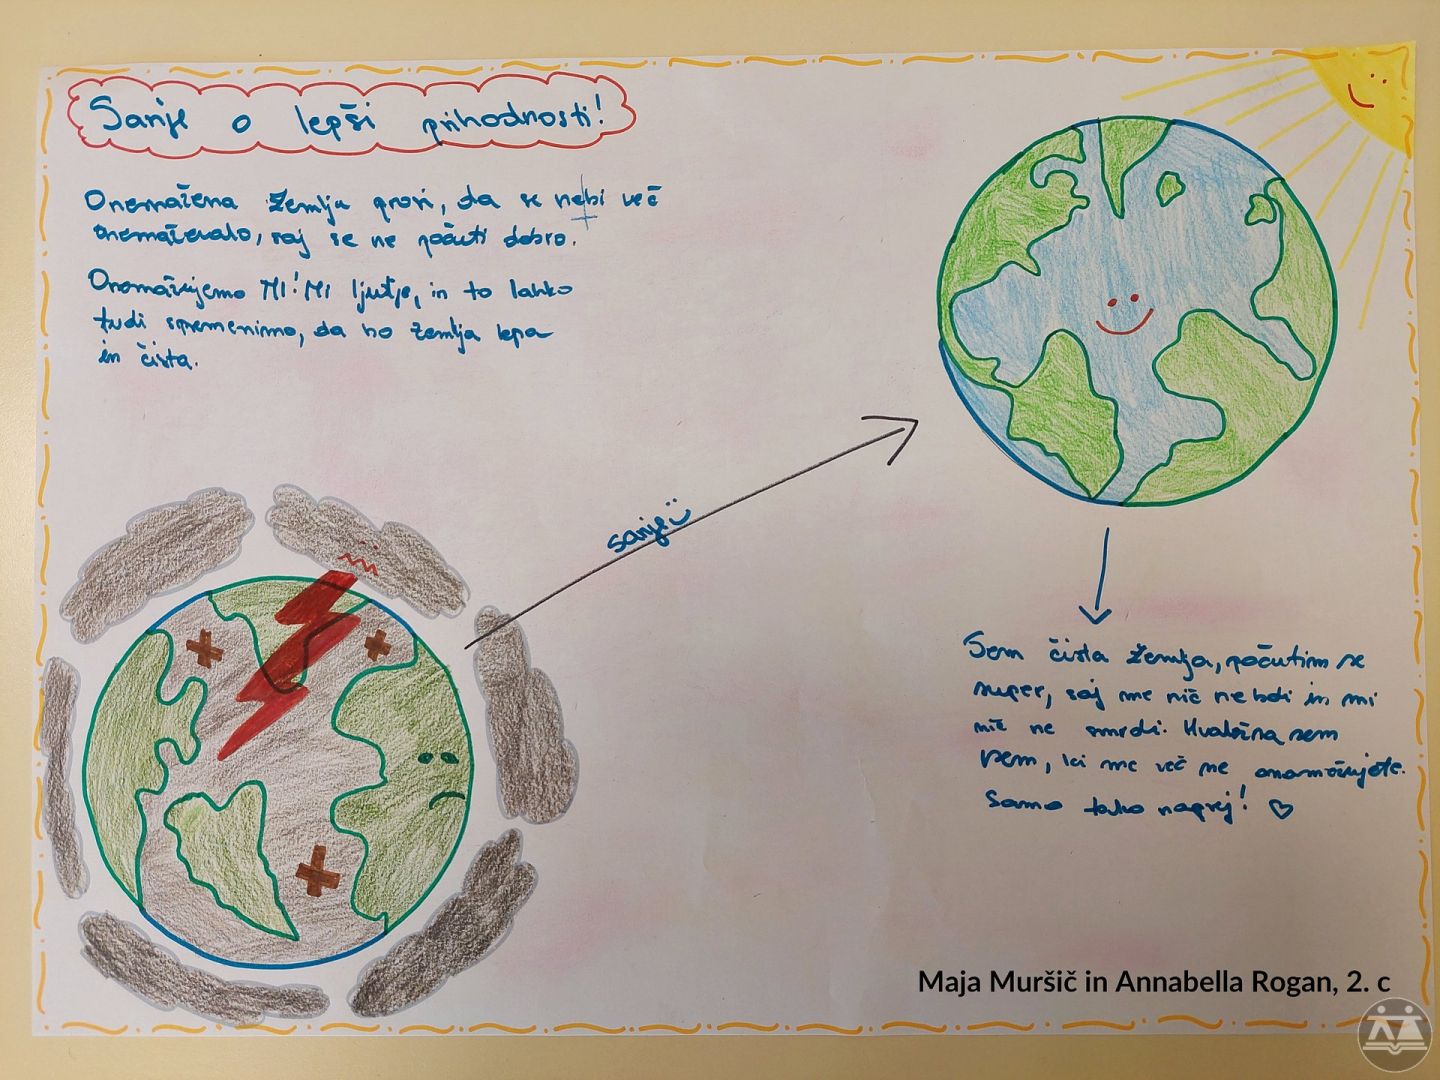 Sanje o lepši prihodnosti!
Onesnažena Zemlja prosi, da se nebi več
onesnaževalo, saj se ne počuti dobro.
Onesnažujemo MI! Mi ljudje, in to lahko
tudi spremenimo, da bo Zemlja lepa
in čista.
sanje
Sem čista Zemlja, počutim se
super, saj me nič ne boli in mi
nič ne smrdi. Hvaležna sem
vsem, ki me več ne onesnažujete.
Samo tako naprej!
Maja Muršič in Annabella Rogan, 2. c